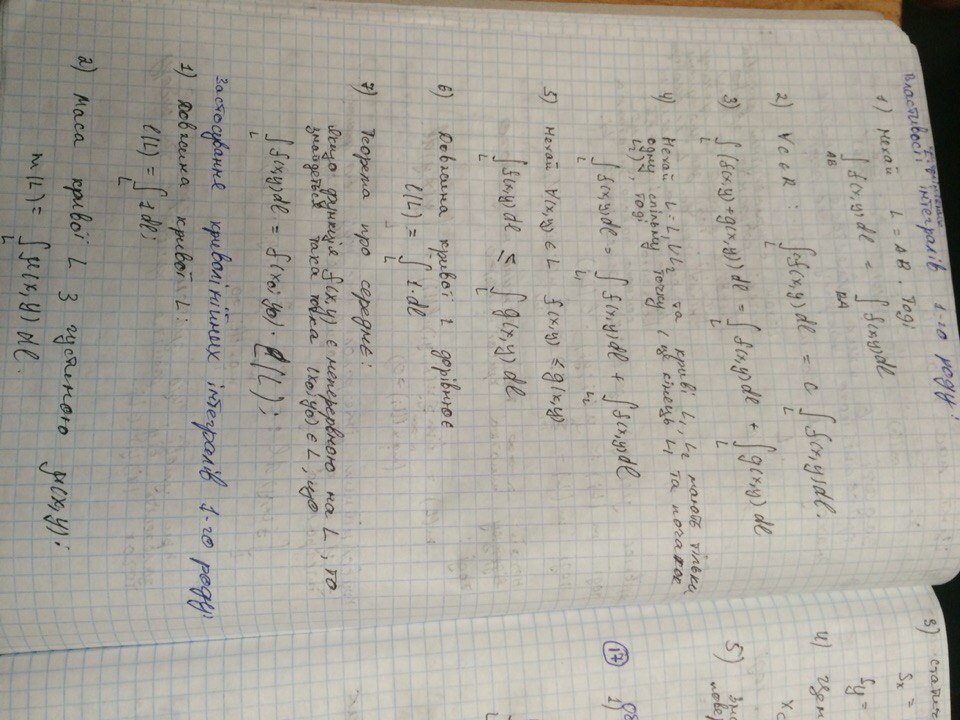 криволінійних
Властивості інтегралів 1-го роду:
1) Нехай L = AB. Тоді
∫ f(x,y)dl = ∫ f(x,y)dl
AB BA
2) ∀c∈R : ∫ cf(x,y)dl = c ∫ f(x,y)dl.
L L
3) ∫ (f(x,y)+g(x,y))dl = ∫ f(x,y)dl + ∫ g(x,y)dl
L L L
4) Нехай L=L₁∪L₂ та криві L₁, L₂ мають тільки
одну спільну точку (це кінець L₁ та початок
L₂), тоді
∫ f(x,y)dl = ∫ f(x,y)dl + ∫ f(x,y)dl
L L₁ L₂
5) Нехай ∀(x,y)∈L f(x,y) ≤ g(x,y)
∫ f(x,y)dl ≤ ∫ g(x,y)dl
L L
6) Довжина кривої L дорівнює
l(L) = ∫ 1·dl
L
7) Теорема про середнє:
Якщо функція f(x,y) є неперервною на L, то
знайдеться така точка (x₀;y₀)∈L, що
∫ f(x,y)dl = f(x₀;y₀)·l(L);
L
Застосування криволінійних інтегралів 1-го роду:
1) Довжина кривої L:
l(L) = ∫ 1dl;
L
2) Маса кривої L з густиною μ(x,y):
m(L) = ∫ μ(x,y)dl.
L
3) статич
Sₓ =
Sy =
4) Цен
xc
5)
повер
17 1)